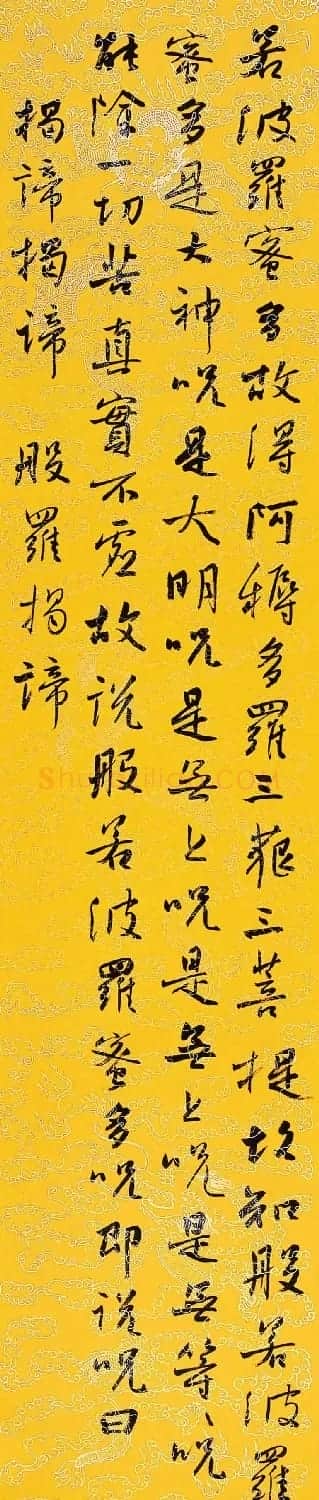 若波羅蜜多故得阿耨多羅三藐三菩提故知般若波羅
蜜多是大神呪是大明呪是無上呪是無上呪是無等々呪
能除一切苦真實不虛故說般若波羅蜜多呪即說呪曰
揭諦揭諦 般羅揭諦